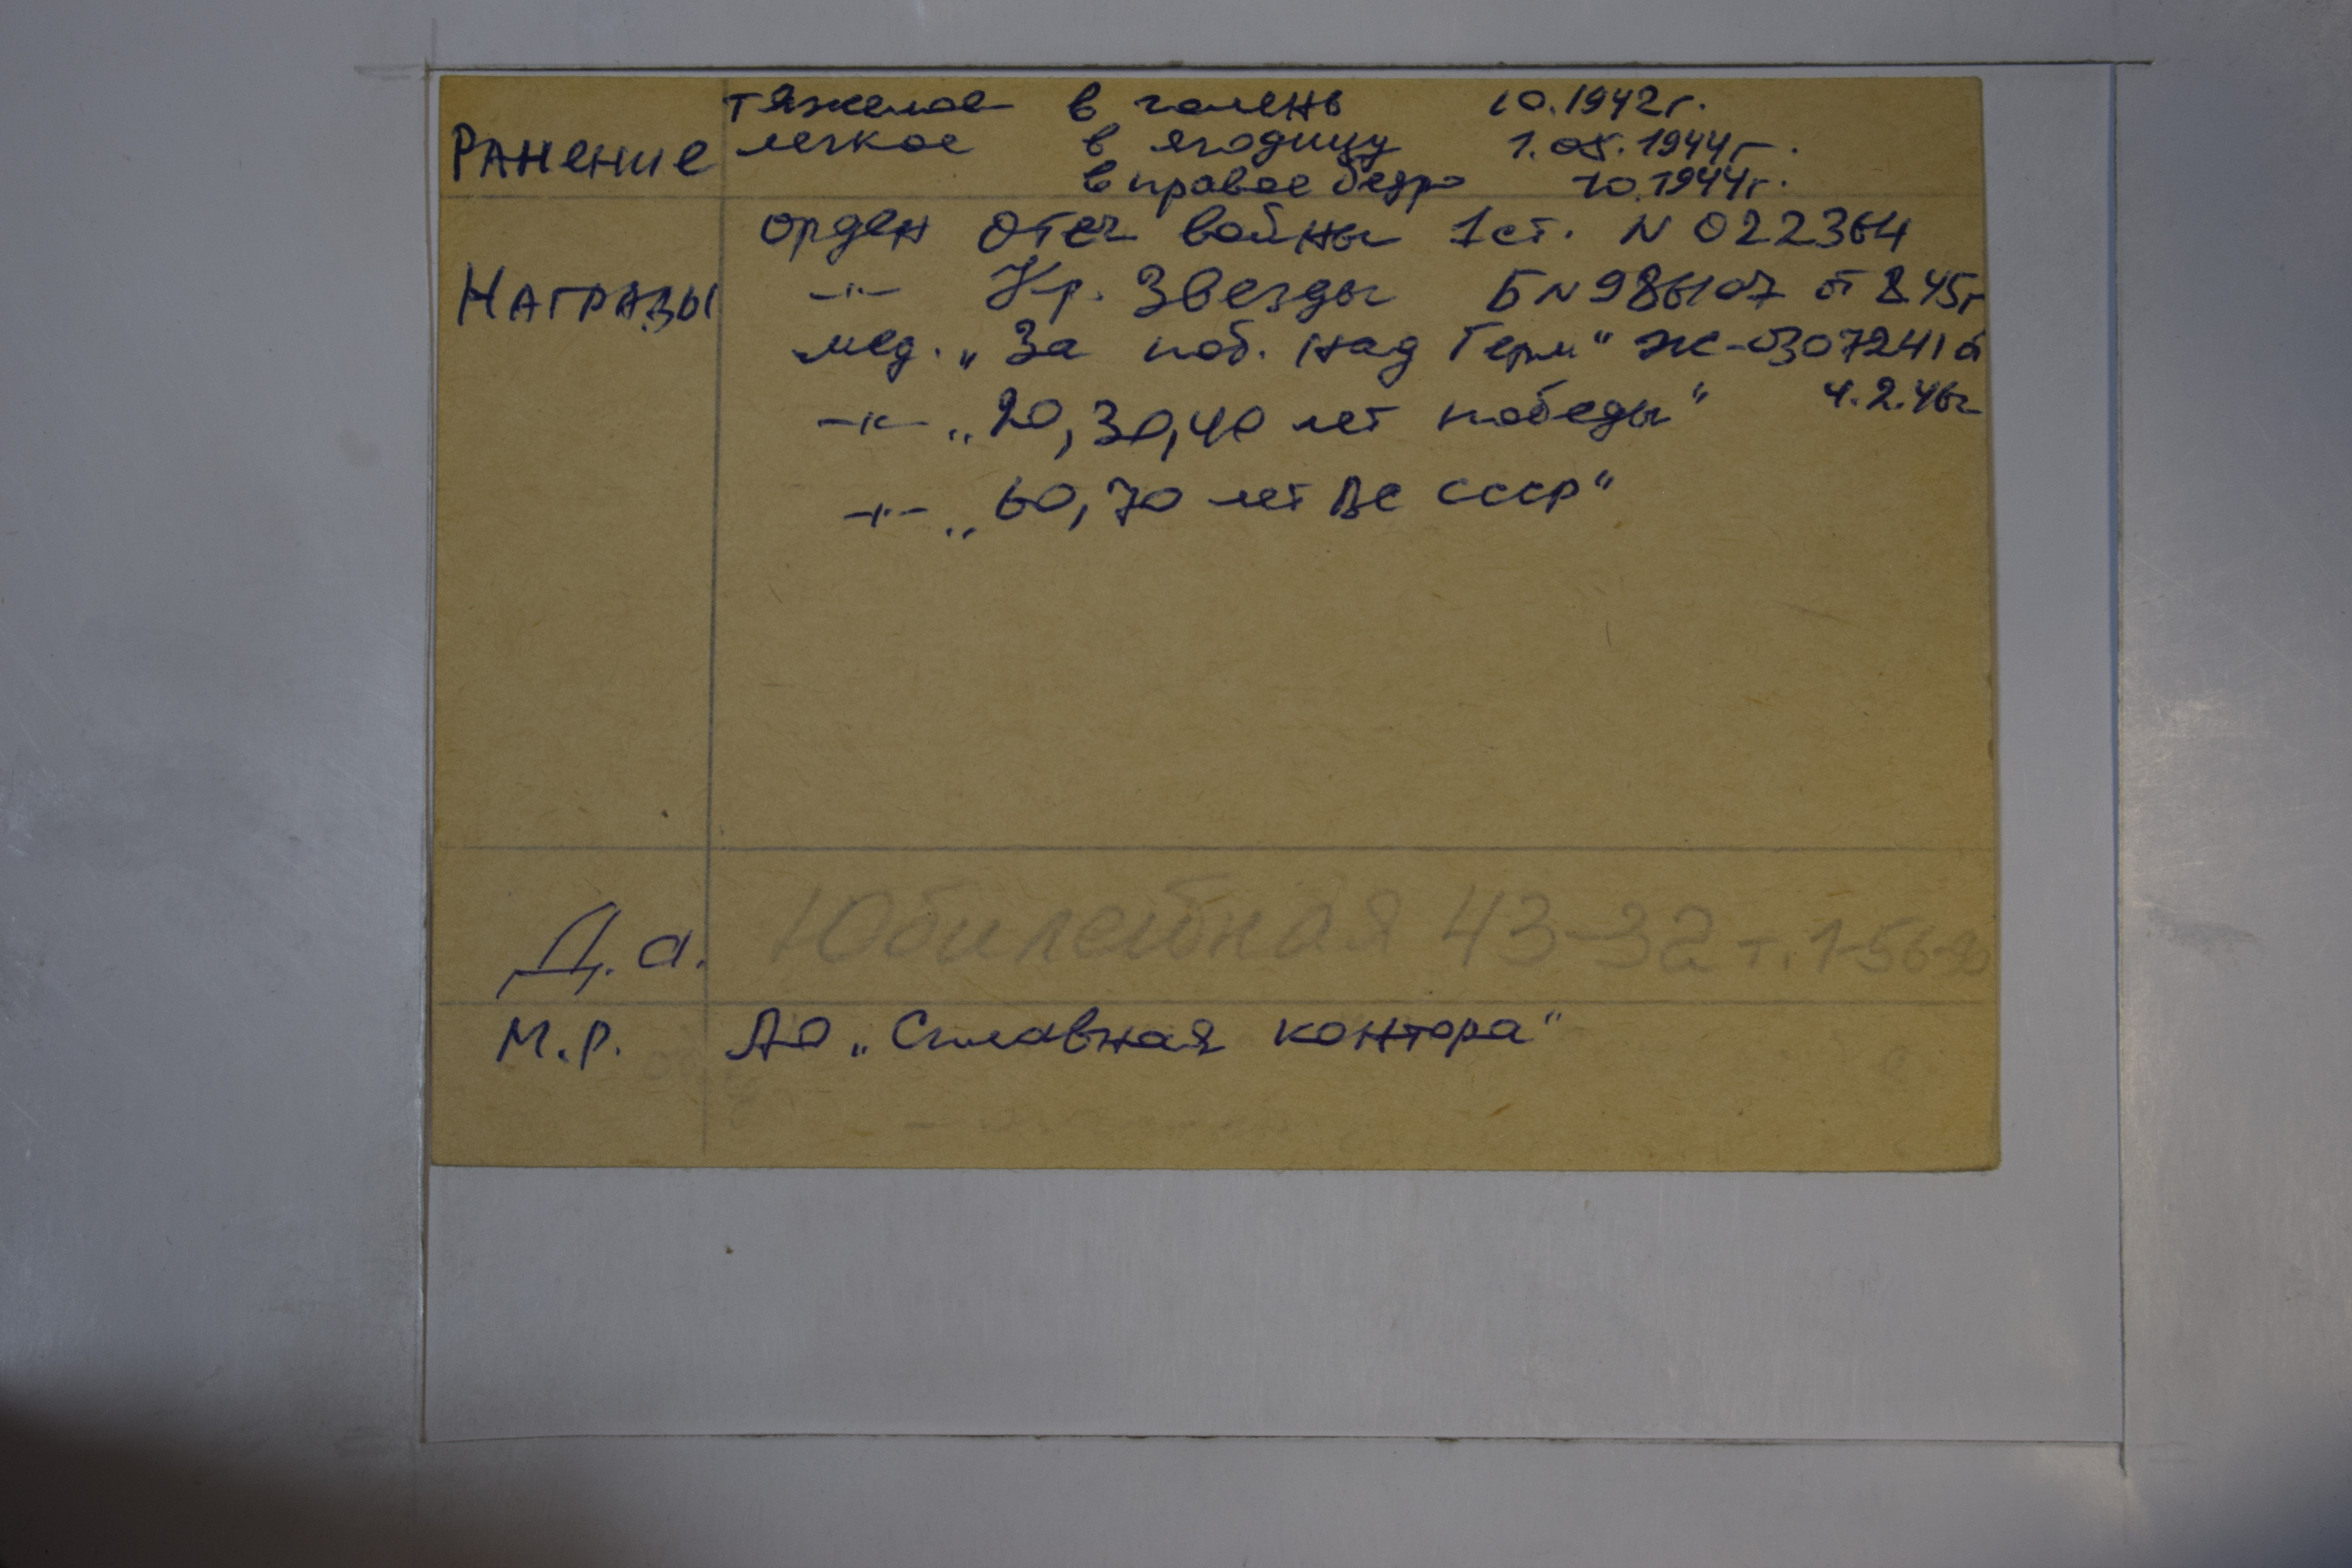 тяжелое в голень 10.1942г.
Ранение легкое в ягодицу 1.05.1944г.
в правое бедро 10.1944г.
орден Отеч войны 1 ст. N 022364
Награды —"— Кр. Звезды Б N 986107 от 8.45г
мед. „За поб. над Герм" Ж-0307241 от
4.2.46г
—"— „20, 30, 40 лет победы"
—"— „60, 70 лет ВС СССР"
Д.а. Юбилейная 43-32 т. 1-56-
М.Р. АО „Сплавная контора"